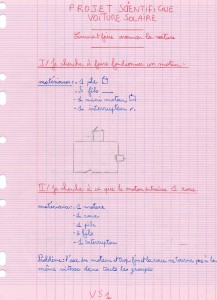 PROJET SCIENTIFIQUE
VOITURE SOLAIRE
Comment faire avancer la voiture
I/ Je cherche à faire fonctionner un moteur
matériaux: - 1 pile
- 2 fils
- 1 mini moteur
- 1 interrupteur
II/ Je cherche à ce que le moteur entraîne 1 roue
matériaux: - 1 moteur
- 1 roue
- 1 pile
- 2 fils
- 1 interrupteur
Problème: l'axe du moteur est trop la roue ne tourne pas à la
même vitesse dans tous les groupes
VS1